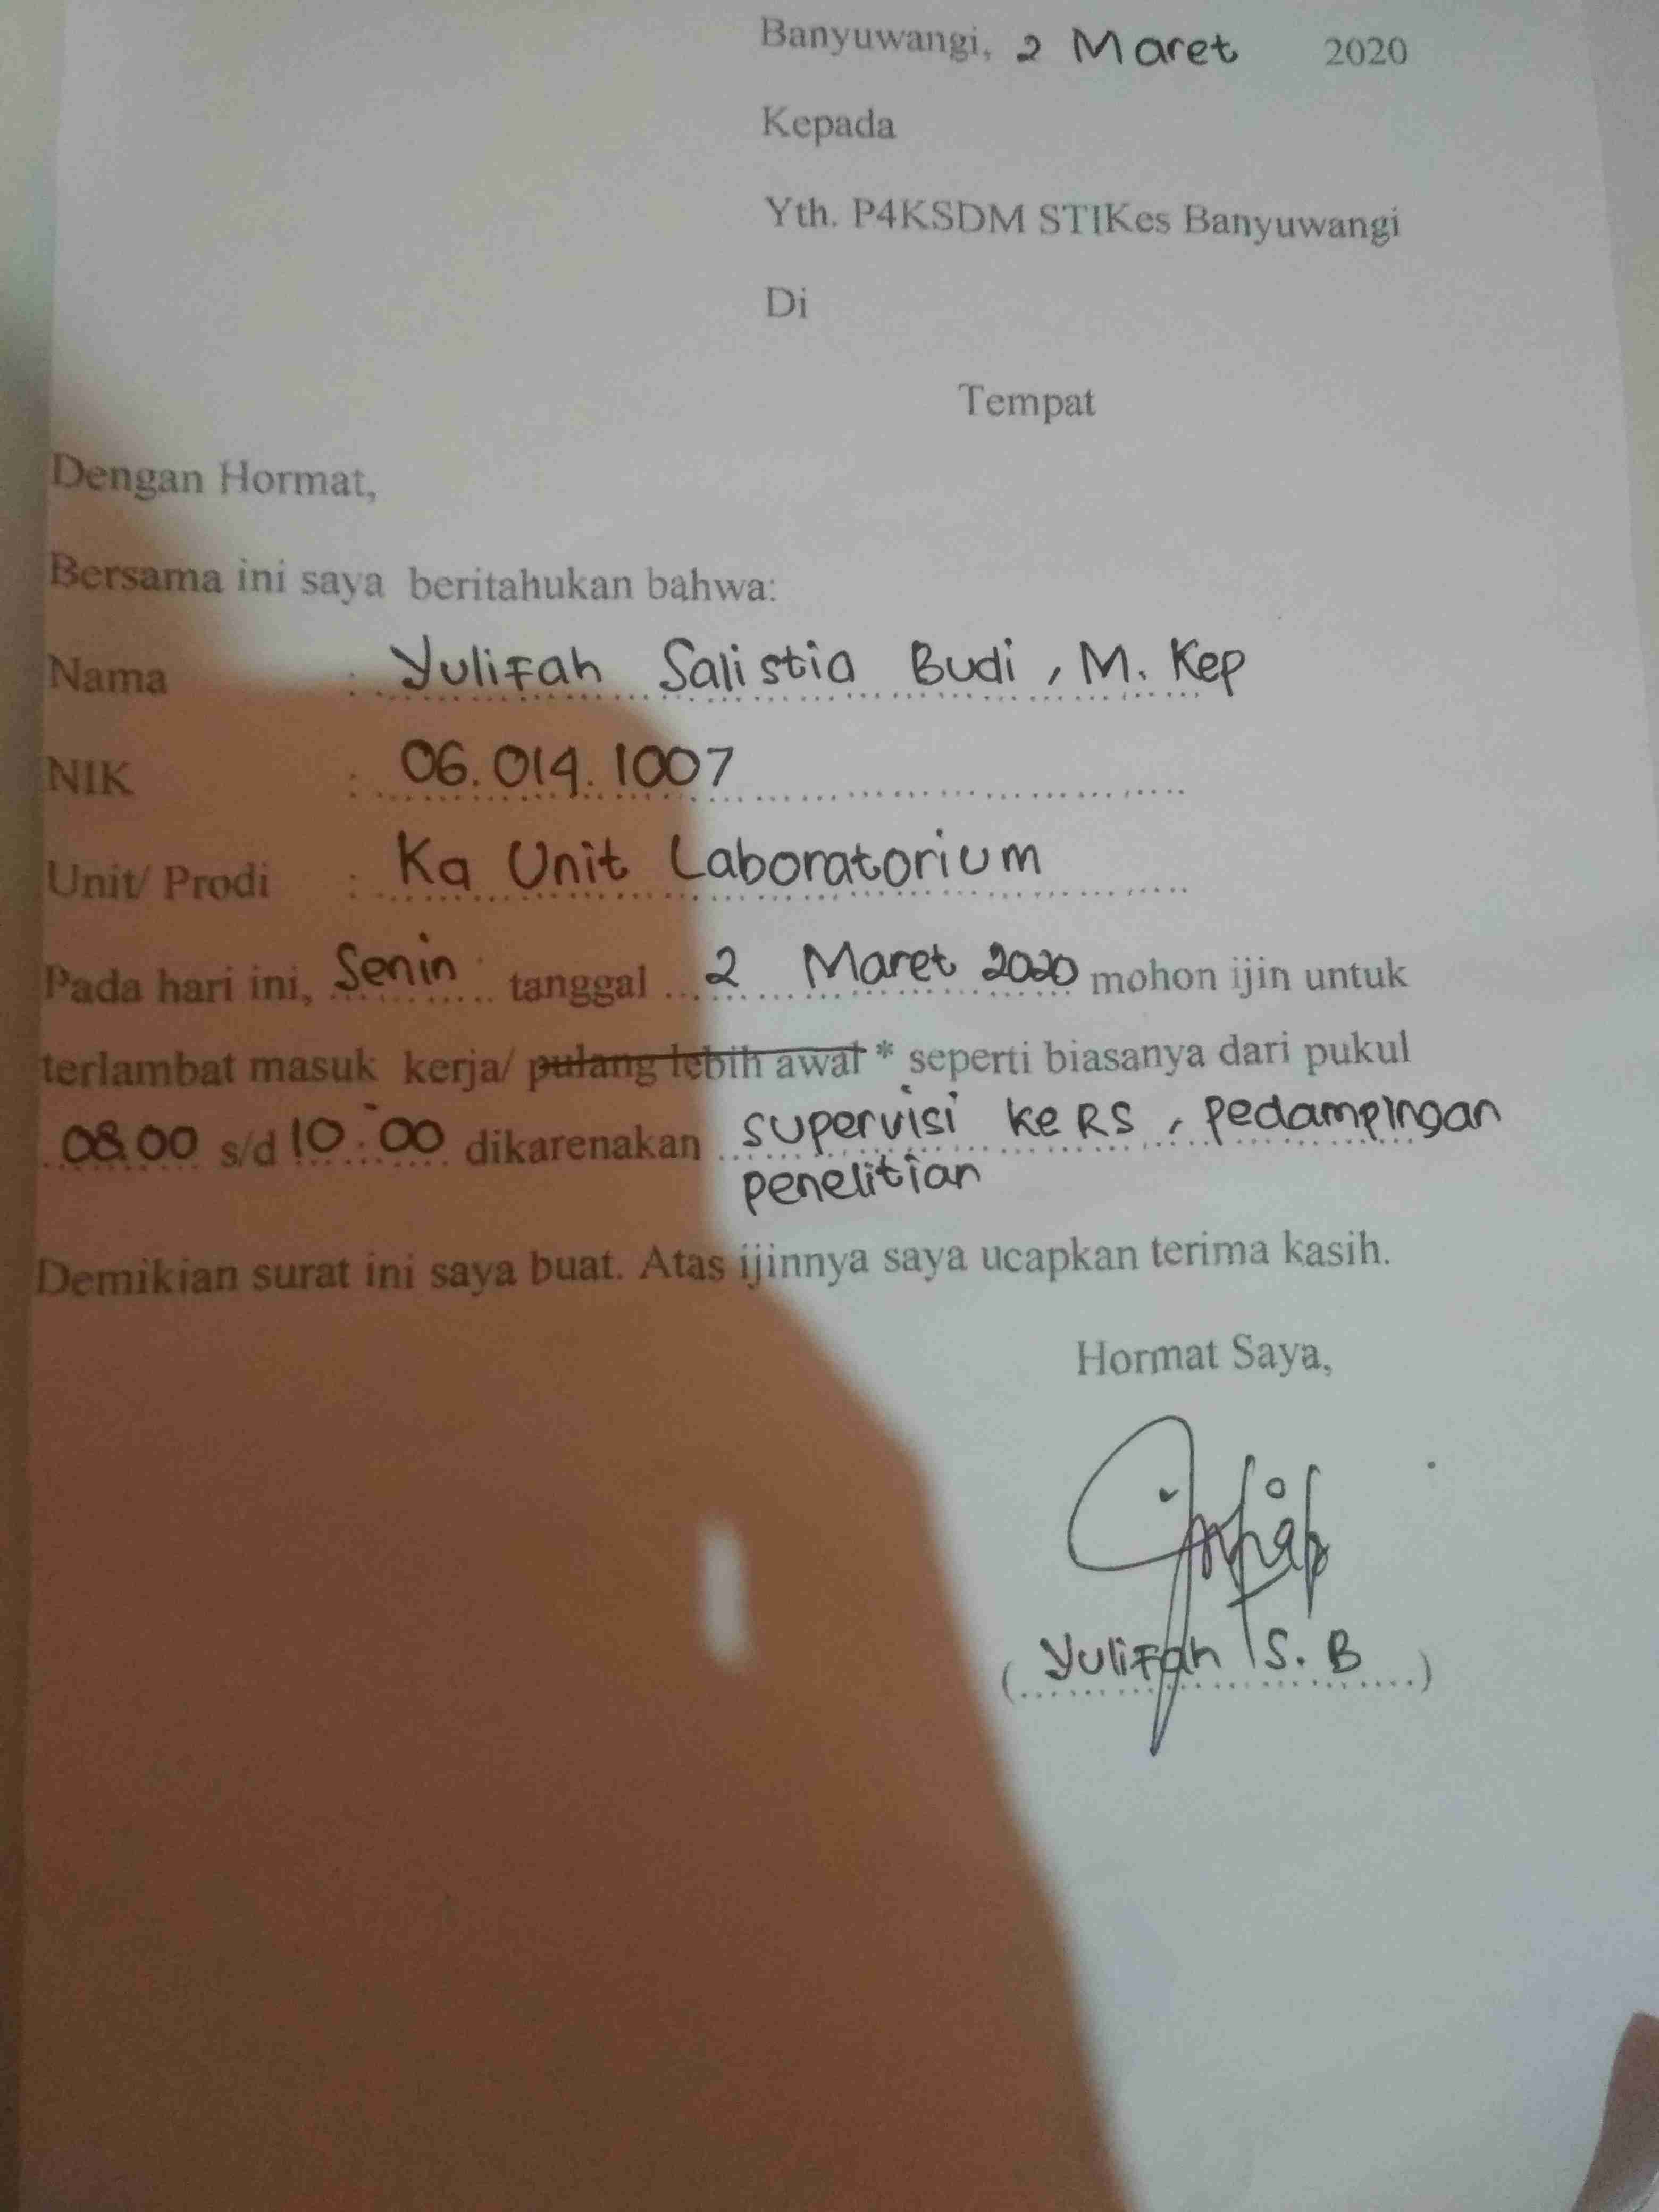 Banyuwangi, 2 Maret 2020
Kepada
Yth. P4KSDM STIKes Banyuwangi
Di
Tempat
Dengan Hormat,
Bersama ini saya beritahukan bahwa:
Nama : Yulifah Salistia Budi, M. Kep
NIK : 06.014.1007
Unit/ Prodi : Ka Unit Laboratorium
Pada hari ini, Senin tanggal 2 Maret 2020 mohon ijin untuk
terlambat masuk kerja/ pulang lebih awal * seperti biasanya dari pukul
08.00 s/d 10.00 dikarenakan supervisi ke RS, pedampingan
penelitian
Demikian surat ini saya buat. Atas ijinnya saya ucapkan terima kasih.
Hormat Saya,
(Yulifah S. B)